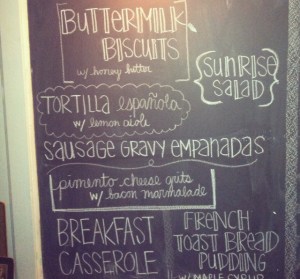 BUTTERMILK
BISCUITS
w/ honey butter
SUNRISE
SALAD
TORTILLA española
w/ lemon aioli
SAUSAGE GRAVY EMPANADAS
pimento-cheese grits
w/ bacon marmalade
BREAKFAST
CASSEROLE
FRENCH
TOAST BREAD
PUDDING
w/ MAPLE SYRUP